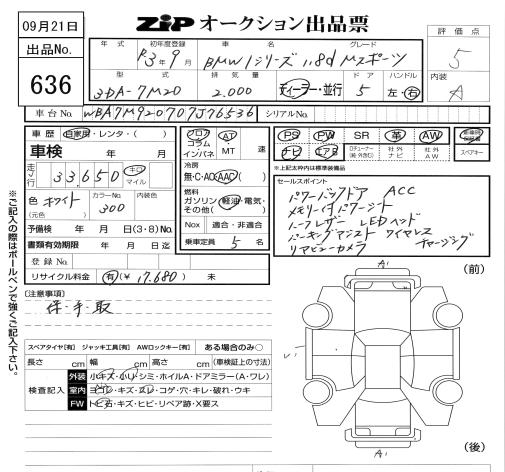 09月21日
出品No.
636
ZiP オークション出品票
評価点
5
内装
A
年式 初年度登録 車名 グレード
R3年9月 BMW 1シリーズ 118d Mスポーツ
型式 排気量 ドア ハンドル
3DA-7M20 2.000 ディーラー・並行 5 左・右
車台No. WBA7M920707J76536 シリアルNo.
車歴 自家用・レンタ・( )
フロア コラム インパネ
AT・MT
PS PW SR 革 AW
車検 年 月
ナビ エアB 社外ナビ 社外AW スペアキー
※上記太枠内は標準装備品
冷房
無・C・AC・AAC( )
走行 33,650 キロ マイル
燃料
ガソリン・軽油・電気・その他( )
色 ホワイト カラーNo. 300 内装色
(元色 )
セールスポイント
パワーバックドア ACC
メモリー付パワーシート
ハーフレザー LEDヘッド
パーキングアシスト ワイヤレス
リアビューカメラ チャージング
予備検 年 月 日(3・8)No.
Nox 適合・非適合
書類有効期限 年 月 日迄
乗車定員 5 名
登録No.
リサイクル料金 有(¥ 17.680 ) 未
(前)
A1
[注意事項]
保・手・取
スペアタイヤ[有] ジャッキ工具[有] AWロックキー[有] ある場合のみ○
長さ cm 幅 cm 高さ cm (車検証上の寸法)
検査記入
外装 小キズ・小U・シミ・ホイルA・ドアミラー(A・ワレ)
室内 ヨゴレ・キズ・スレ・コゲ・穴・キレ・破れ・ウキ
FW トビ石・キズ・ヒビ・リペア跡・X要ス
A1
(後)
※ご記入の際はボールペンで強くご記入下さい。